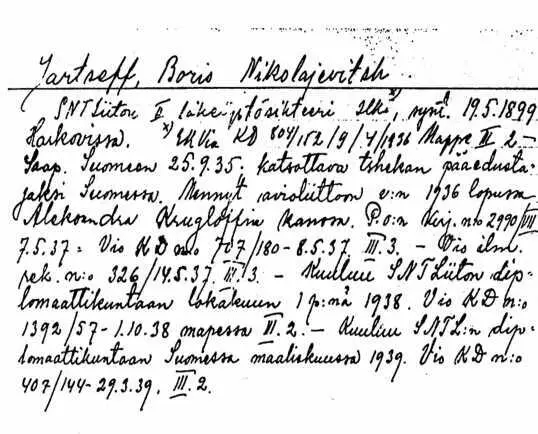 Jartseff, Boris Nikolajevitsh
SNTLiiton II lähetystösihteeri Hki, synt. 19.5.1899
Harkovissa. x) EK Via KD 804/152/9/4/1936 Mappe II 2 -
Saap. Suomeen 25.9.35. katsottava tshekan pääedusta-
jaksi Suomessa. Mennyt avioliittoon v:n 1936 lopussa
Aleksandra Krugloffin kanssa. P.o:n kirj. n:o 2990/VIII
7.5.37 = Vis KD n:o 707/180 - 8.5.37. III.3. - Vis ilm.
rek. n:o 326/14.5.37. IV.3. - Kuuluu SNTLiiton dip-
lomaattikuntaan lokakuun 1 p:nä 1938. Vis KD n:o
1392/57 - 1.10.38 mapessa VI.2. - Kuuluu SNTL:n dip-
lomaattikuntaan Suomessa maaliskuussa 1939. Vis KD n:o
407/144 - 29.3.39. III.2.